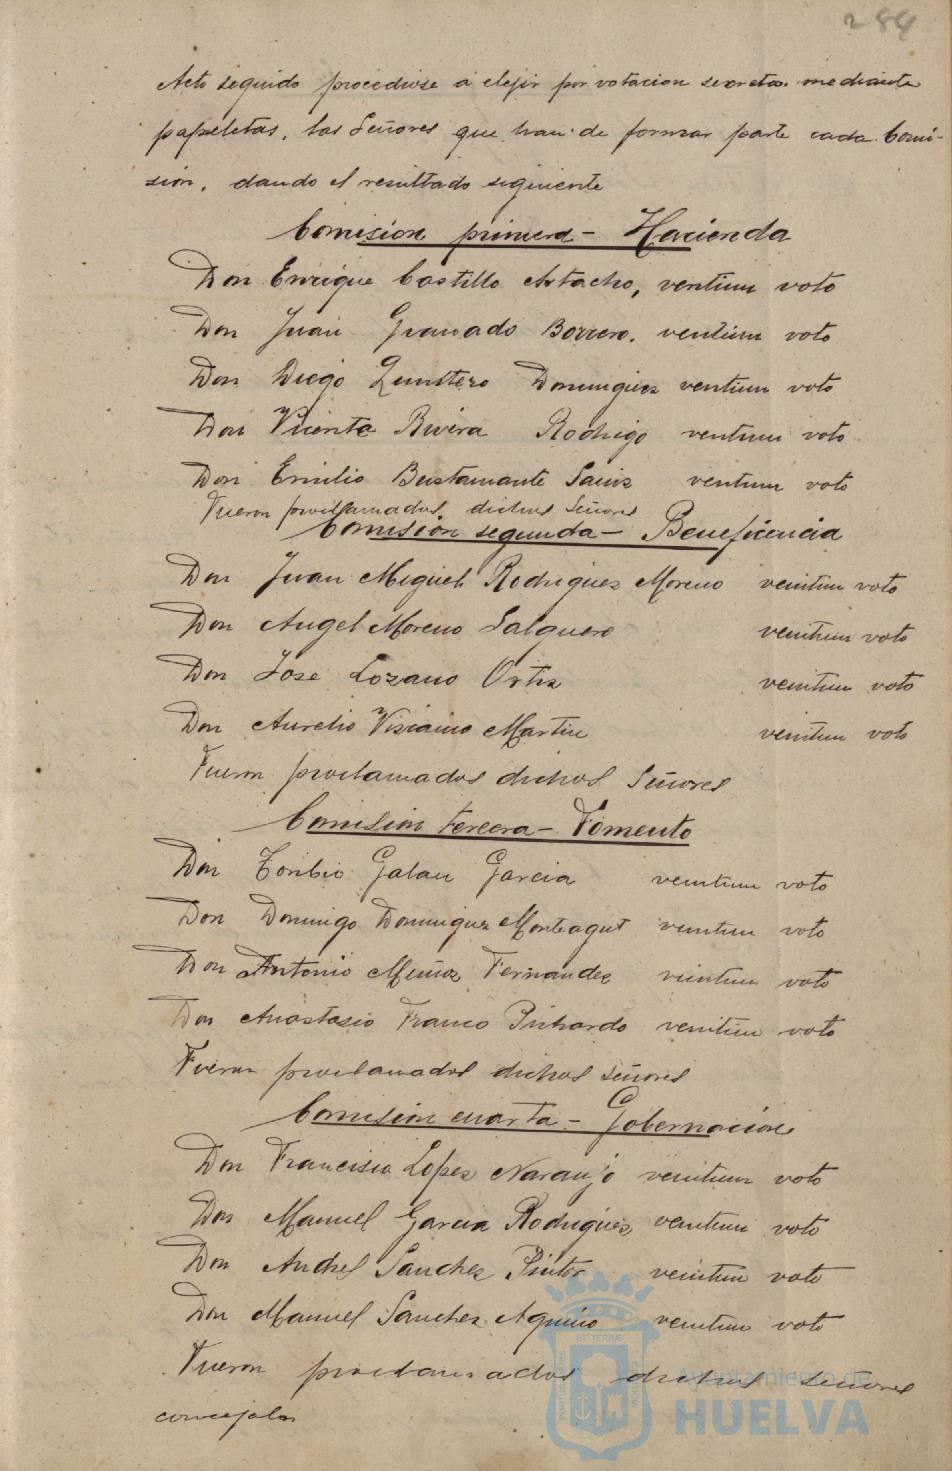 284
Acto seguido procediose a elejir por votacion secreta mediante
papeletas, los Señores que han de formar parte cada Comi-
sión, dando el resultado siguiente
Comision primera - Hacienda
Don Enrique Castillo Artacho, ventiun voto
Don Juan Granado Borrero, ventiun voto
Don Diego Quintero Dominguez ventiun voto
Don Vicente Rivera Rodrigo ventiun voto
Don Emilio Bustamante Sainz ventiun voto
Fueron proclamados dichos Señores
Comisión segunda - Beneficencia
Don Juan Miguel Rodriguez Moreno veintiun voto
Don Angel Moreno Salguero veintiun voto
Don Jose Lozano Ortiz veintiun voto
Don Aurelio Viscaino Martin veintiun voto
Fueron proclamados dichos Señores
Comision tercera - Fomento
Don Toribio Galan Garcia veintiun voto
Don Domingo Dominguez Monteagut veintiun voto
Don Antonio Muñoz Fernandez veintiun voto
Don Anastasio Franco Pichardo veintiun voto
Fueron proclamados dichos señores
Comisión cuarta - Gobernacion
Don Francisco Lopez Naranjo veintiun voto
Don Manuel Garcia Rodriguez veintiun voto
Don Andres Sanchez Pintor veintiun voto
Don Manuel Sanchez Aquino veintiun voto
Fueron proclamados dichos señores
concejales
ayuntamiento de
HUELVA